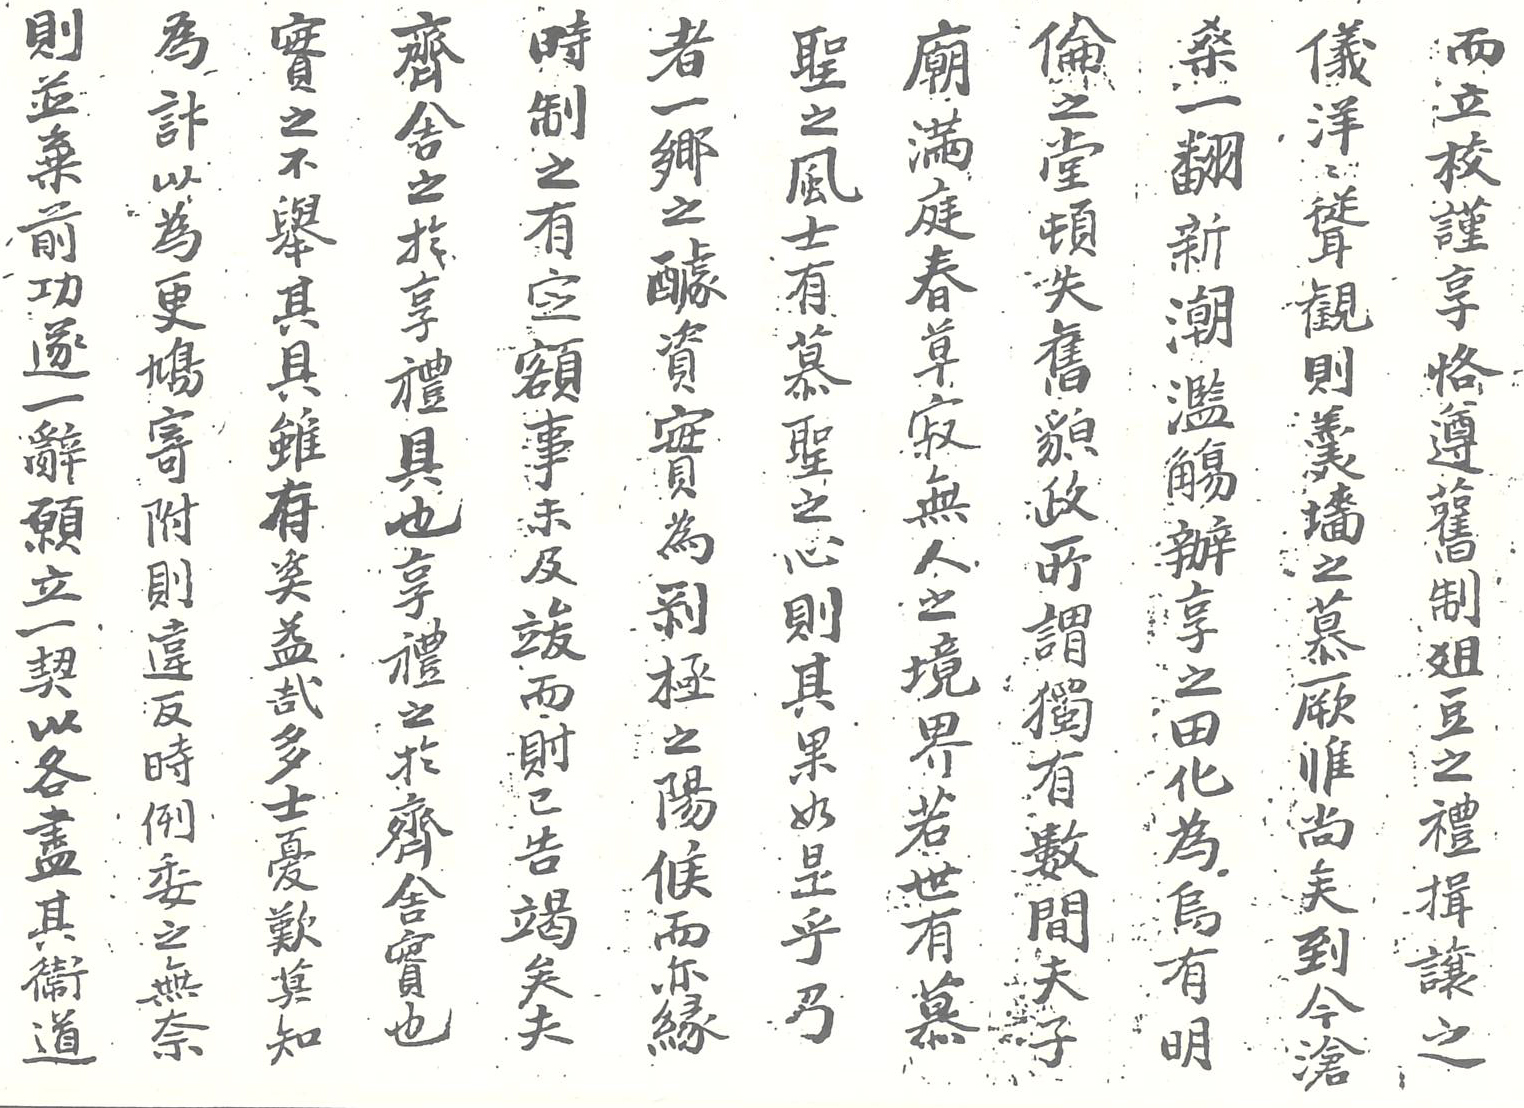 而立校謹享恪遵舊制俎豆之禮揖讓之
儀洋〻聳觀則羹墻之慕厥惟尚矣到今滄
桑一翻新潮濫觴辦享之田化為烏有明
倫之堂頓失舊貌政所謂獨有數間夫子
廟滿庭春草寂無人之境界若世有慕
聖之風士有慕聖之心則其果如是乎乃
者一鄉之醵資實為剝極之陽候而亦緣
時制之有定額事未及竣而財已告竭矣夫
齊舍之於享禮具也享禮之於齊舍實也
實之不舉其具雖存奚益哉多士憂歎莫知
為計以為更鳩寄附則違反時例委之無奈
則並棄前功遂一辭願立一契以各盡其衛道